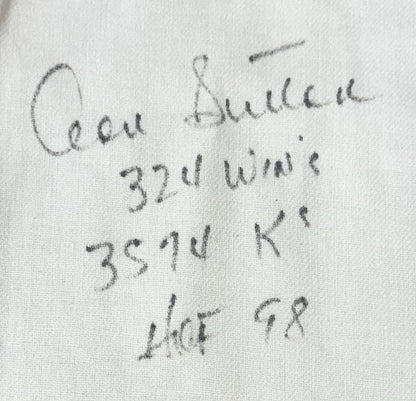 Don Sutton
324 Wins
3574 Ks
HOF 98